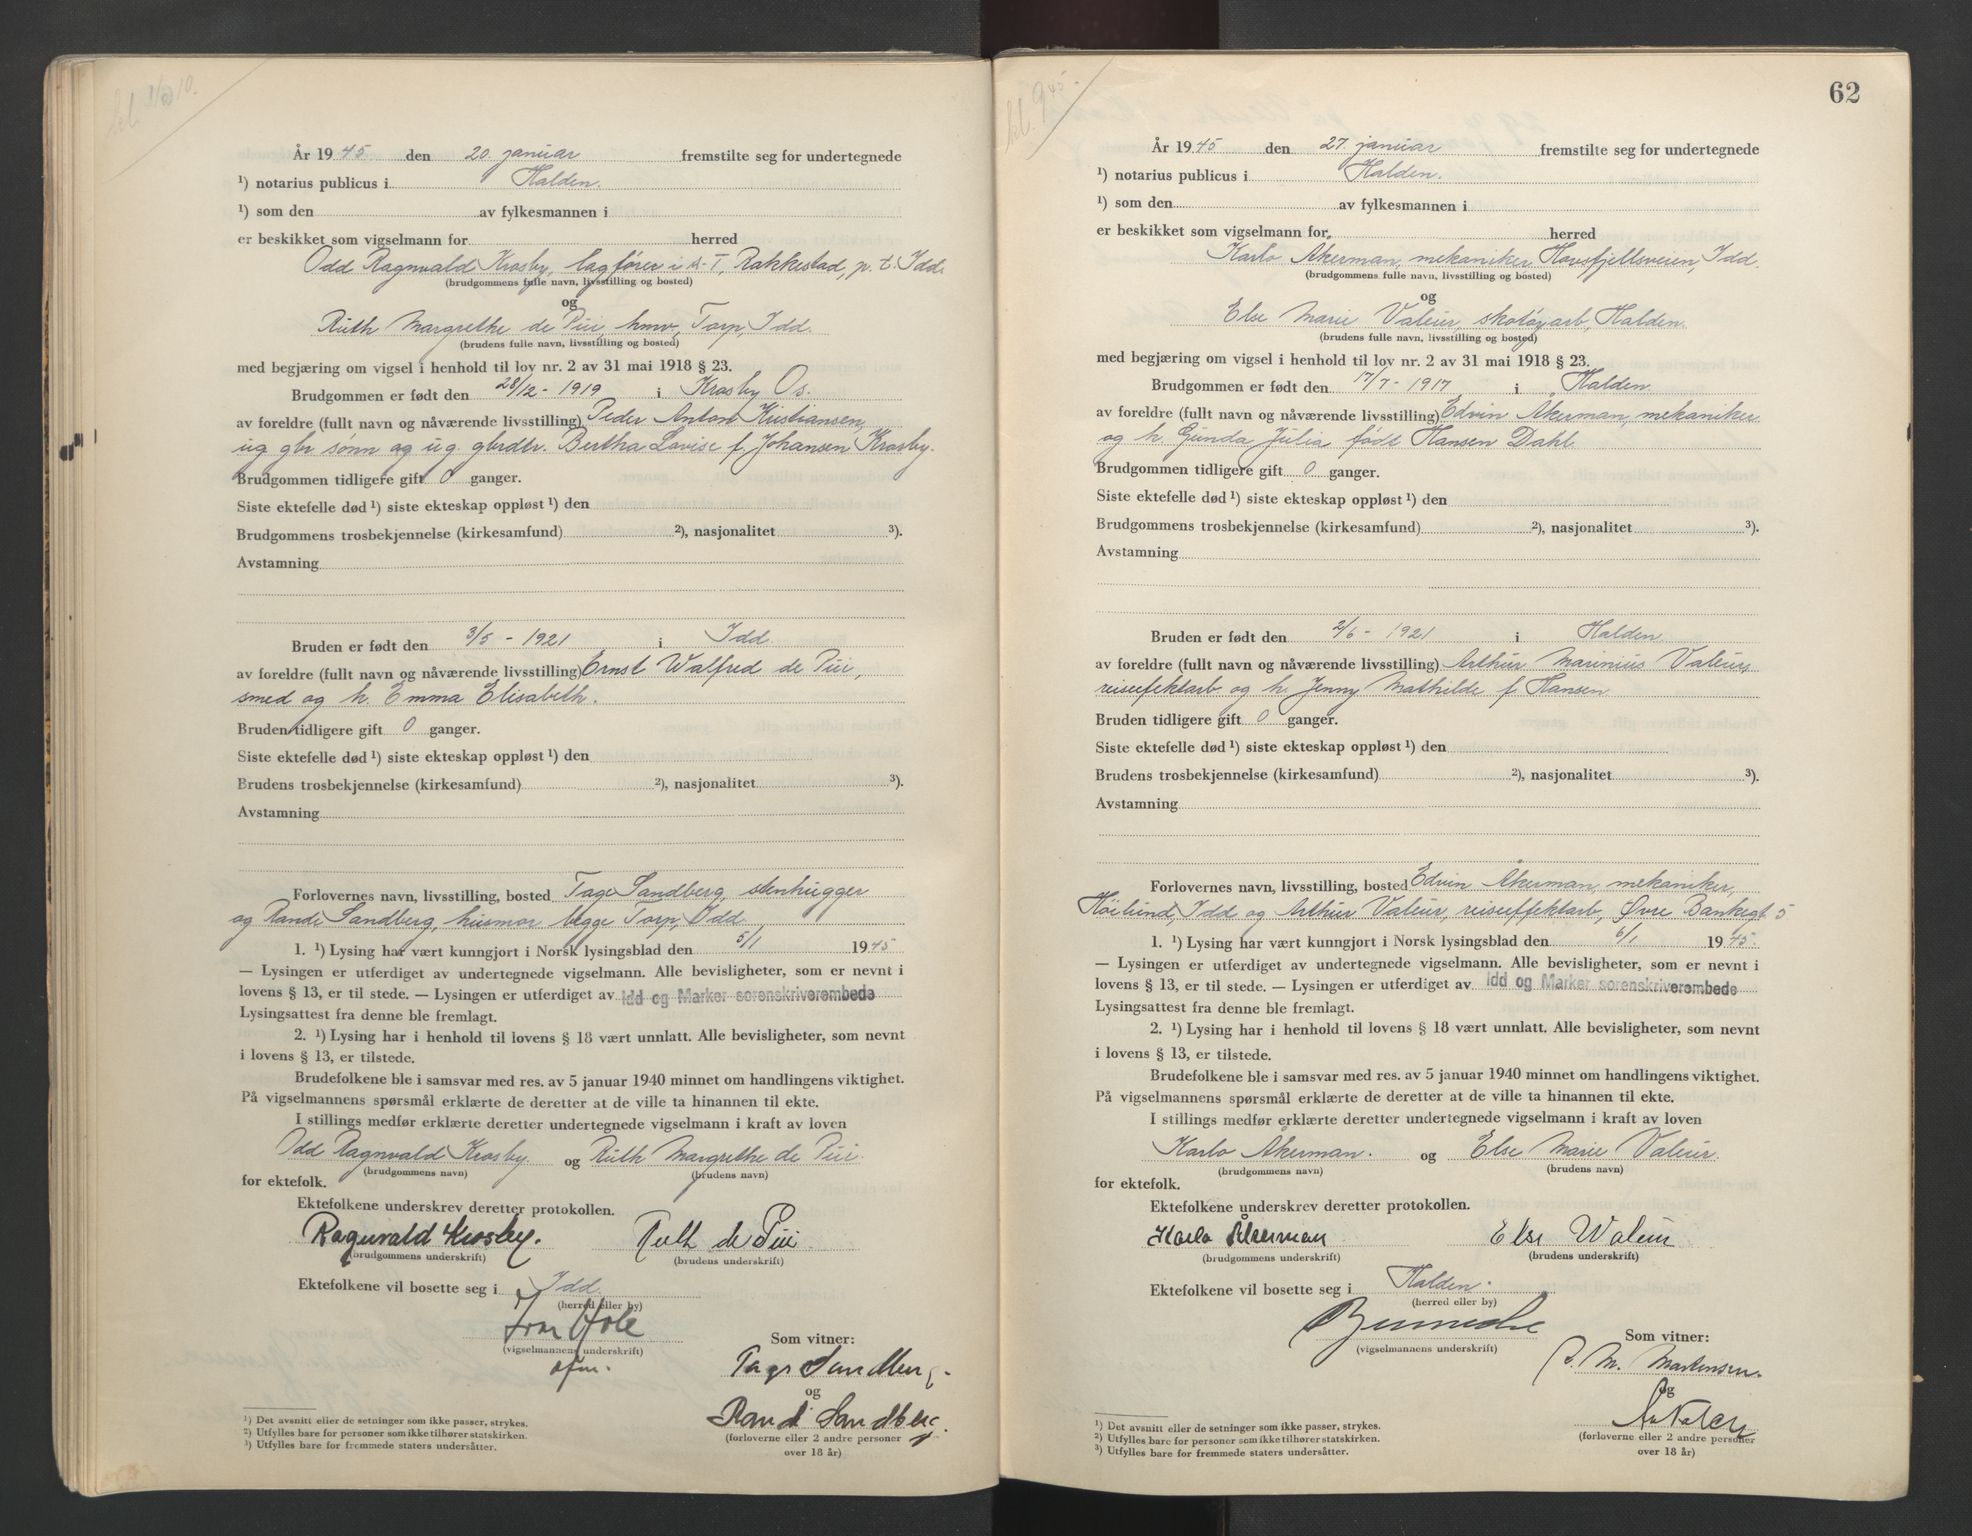 År 1945 den 20. januar fremstilte seg for undertegnede
¹) notarius publicus i Halden.
¹) som den av fylkesmannen i
er beskikket som vigselmann for herred
Odd Ragnvald Krosby, lagfører i A.T, Rakkestad, p.t. Idd.
(brudgommens fulle navn, livsstilling og bosted)
og
Ruth Margrethe de Pui hmv, Torp, Idd.
(brudens fulle navn, livsstilling og bosted)
med begjæring om vigsel i henhold til lov nr. 2 av 31 mai 1918 § 23.
Brudgommen er født den 28/12 - 1919 i Krosby Os.
av foreldre (fullt navn og nåværende livsstilling) Peder Anton Kristiansen,
ug gbr sønn og ug. gbrdtr. Bertha Lovise f. Johansen Krosby.
Brudgommen tidligere gift 0 ganger.
Siste ektefelle død ¹) siste ekteskap oppløst ¹) den
Brudgommens trosbekjennelse (kirkesamfund) ²), nasjonalitet ³).
Avstamning
Bruden er født den 3/5 - 1921 i Idd.
av foreldre (fullt navn og nåværende livsstilling) Ernst Walfred de Pui,
smed og h. Emma Elisabeth.
Bruden tidligere gift 0 ganger.
Siste ektefelle død ¹) siste ekteskap oppløst ¹) den
Brudens trosbekjennelse (kirkesamfund) ²), nasjonalitet ³).
Avstamning
Forlovernes navn, livsstilling, bosted Tage Sandberg, stenhugger
og Randi Sandberg, husmor begge Torp, Idd.
1. ¹) Lysing har vært kunngjort i Norsk lysingsblad den 5/1 1945
— Lysingen er utferdiget av undertegnede vigselmann. Alle bevisligheter, som er nevnt i
lovens § 13, er til stede. — Lysingen er utferdiget av Idd og Marker sorenskriverembede
Lysingsattest fra denne ble fremlagt.
2. ¹) Lysing har i henhold til lovens § 18 vært unnlatt. Alle bevisligheter, som nevnt
i lovens § 13, er tilstede.
Brudefolkene ble i samsvar med res. av 5 januar 1940 minnet om handlingens viktighet.
På vigselmannens spørsmål erklærte de deretter at de ville ta hinannen til ekte.
I stillings medfør erklærte deretter undertegnede vigselmann i kraft av loven
Odd Ragnvald Krosby og Ruth Margrethe de Pui.
(brudgommens navn) (brudens navn)
for ektefolk.
Ektefolkene underskrev deretter protokollen.
Ragnvald Krosby. Ruth de Pui
(brudgommens underskrift) (brudens underskrift)
Ektefolkene vil bosette seg i Idd.
(herred eller by)
(vigselmannens underskrift)
Som vitner:
Tage Sandberg.
og
Randi Sandberg.
(forloverne eller 2 andre personer
over 18 år)
¹) Det avsnitt eller de setninger som ikke passer, strykes.
²) Utfylles bare for personer som ikke tilhører statskirken.
³) Utfylles bare for fremmede staters undersåtter.
kl. 9⁴⁵
62
År 1945 den 27. januar fremstilte seg for undertegnede
¹) notarius publicus i Halden.
¹) som den av fylkesmannen i
er beskikket som vigselmann for herred
Karlo Åkerman, mekaniker, Hovsfjellsveien, Idd.
(brudgommens fulle navn, livsstilling og bosted)
og
Else Marie Valeur, skotøyarb, Halden.
(brudens fulle navn, livsstilling og bosted)
med begjæring om vigsel i henhold til lov nr. 2 av 31 mai 1918 § 23.
Brudgommen er født den 17/7 - 1917 i Halden.
av foreldre (fullt navn og nåværende livsstilling) Edvin Åkerman, mekaniker
og h. Gunda Julia født Hansen Dahl.
Brudgommen tidligere gift 0 ganger.
Siste ektefelle død ¹) siste ekteskap oppløst ¹) den
Brudgommens trosbekjennelse (kirkesamfund) ²), nasjonalitet ³).
Avstamning
Bruden er født den 2/6 - 1921 i Halden
av foreldre (fullt navn og nåværende livsstilling) Arthur Marinius Valeur,
reiseefektarb. og h. Jenny Mathilde f. Hansen
Bruden tidligere gift 0 ganger.
Siste ektefelle død ¹) siste ekteskap oppløst ¹) den
Brudens trosbekjennelse (kirkesamfund) ²), nasjonalitet ³).
Avstamning
Forlovernes navn, livsstilling, bosted Edvin Åkerman, mekaniker,
Höilund, Idd og Arthur Valeur, reiseeffektarb, Øvre Bankegt. 5
1. ¹) Lysing har vært kunngjort i Norsk lysingsblad den 6/1 1945.
— Lysingen er utferdiget av undertegnede vigselmann. Alle bevisligheter, som er nevnt i
lovens § 13, er til stede. — Lysingen er utferdiget av Idd og Marker sorenskriverembede
Lysingsattest fra denne ble fremlagt.
2. ¹) Lysing har i henhold til lovens § 18 vært unnlatt. Alle bevisligheter, som nevnt
i lovens § 13, er tilstede.
Brudefolkene ble i samsvar med res. av 5 januar 1940 minnet om handlingens viktighet.
På vigselmannens spørsmål erklærte de deretter at de ville ta hinannen til ekte.
I stillings medfør erklærte deretter undertegnede vigselmann i kraft av loven
Karlo Åkerman. og Else Marie Valeur.
(brudgommens navn) (brudens navn)
for ektefolk.
Ektefolkene underskrev deretter protokollen.
Karlo Åkerman Else Waleur
(brudgommens underskrift) (brudens underskrift)
Ektefolkene vil bosette seg i Halden.
(herred eller by)
(vigselmannens underskrift)
Som vitner:
M. Martinsen.
og
(forloverne eller 2 andre personer
over 18 år)
¹) Det avsnitt eller de setninger som ikke passer, strykes.
²) Utfylles bare for personer som ikke tilhører statskirken.
³) Utfylles bare for fremmede staters undersåtter.